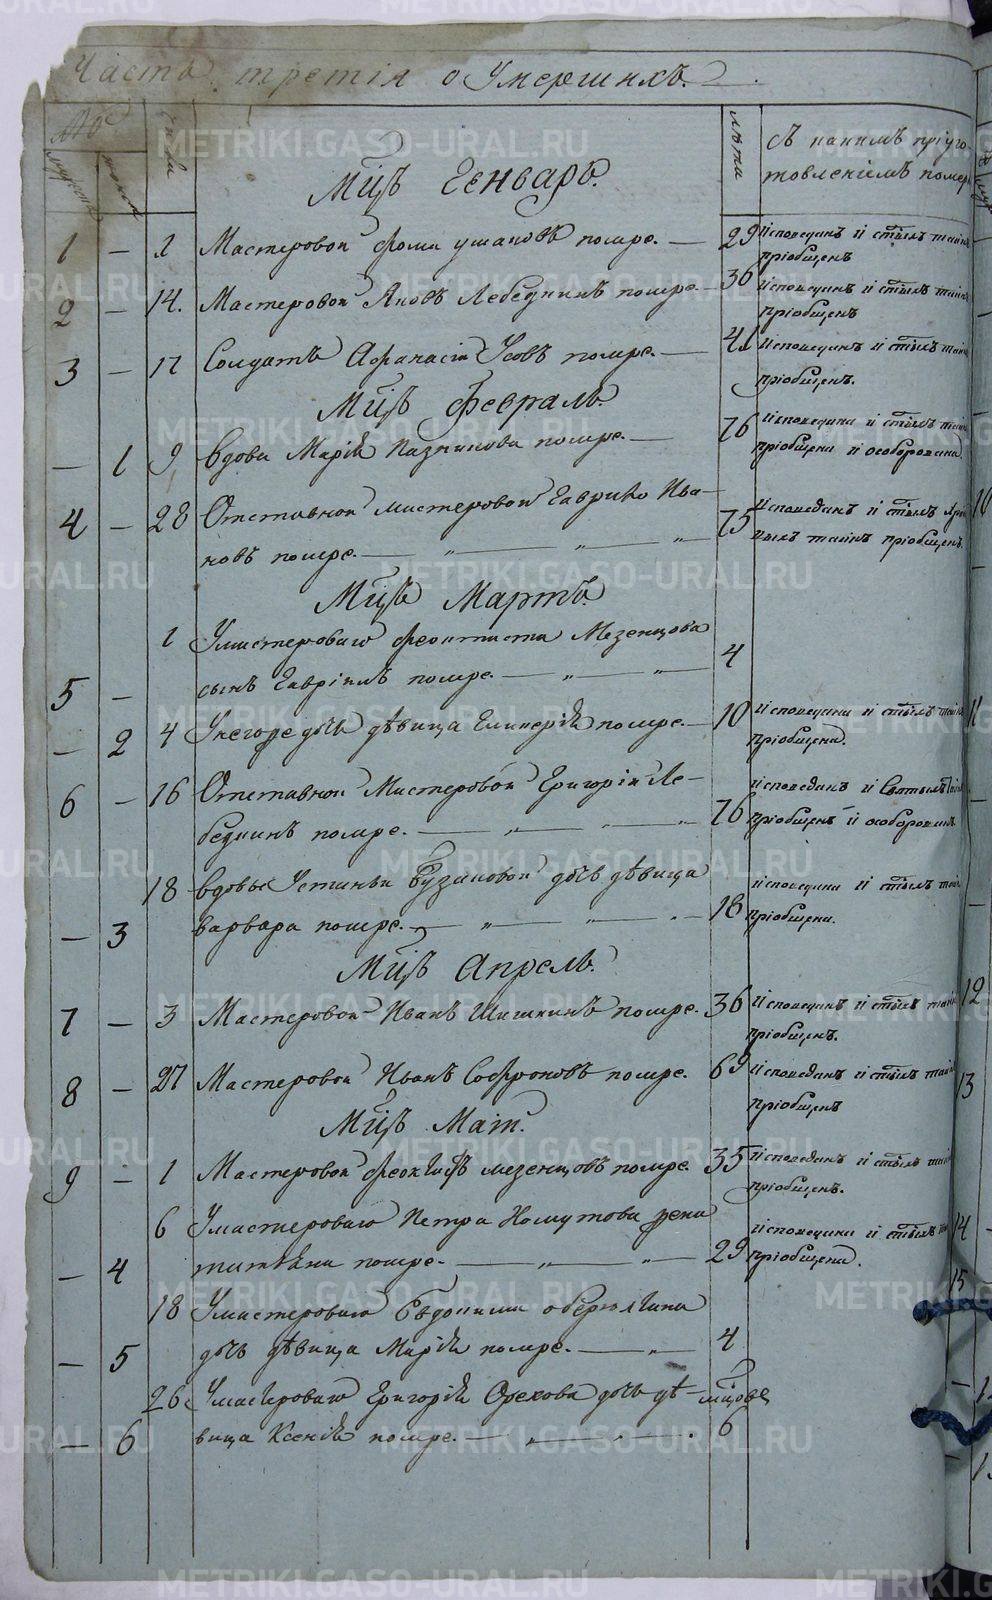 Часть третiя о Умершихъ.
№
мужеска
женска
числа
лѣта
Съ какимъ прiуго-
товленiемъ помер
Мцъ Генварь.
1 — 1 Мастеровой Фома Ушаковъ помре. — 29 исповеданъ и стыхъ таинъ
прiобщенъ
2 — 14. Мастеровой Яковъ Лебедкинъ помре. — 30 исповеданъ и стыхъ таинъ
прiобщенъ
3 — 17 Солдатъ Афанасiй Усовъ помре. — 41 исповеданъ и стыхъ таин
прiобщенъ.
Мцъ Февраль.
— 1 9 Вдова Марiя Казникова помре. — 76 исповедана и стыхъ таин
прiобщена и особорована.
4 — 28 Отставной мастеровой Гаврило Ива-
новъ помре. — „ — „ — „ 75 исповеданъ и стыхъ
таинъ прiобщенъ.
Мцъ Мартъ.
1 У мастероваго Феоктиста Мезенцова
5 — сынъ Гаврiилъ помре. — „ — „ 4
— 2 4 дочь дѣвица Гликерiя помре. — 10 исповедана и стыхъ таинъ
прiобщена.
6 — 16 Отставной Мастеровой Григорiй Ле-
бедкинъ помре. — „ — „ 76 исповеданъ и Святыхъ
прiобщенъ и особорованъ
18 Вдовы Устиньи Бузановой дочь дѣвица
— 3 варвара помре. — „ — „ — „ 18 исповедана и стыхъ таин
прiобщена.
Мцъ Апрель.
7 — 3 Мастеровой Иванъ Шишкинъ помре. 36 исповеданъ и стыхъ таинъ
прiобщенъ.
8 — 27 Мастеровой Иванъ Софроновъ помре. 69 исповеданъ и стыхъ таин
прiобщенъ
Мцъ Маiй.
9 — 1 Мастеровой Феоктистъ мезенцовъ помре. 35 исповеданъ и стыхъ таин
прiобщенъ.
6 У мастероваго Петра Хомутова жена
— 4 татьяна помре. — „ — „ 29 исповедана и стыхъ
прiобщена.
18 У мастероваго Евдокима
— 5 дочь дѣвица Марiя помре. — „ 4
26 У мастероваго Григорiя Орехова дочь дѣ-
— 6 вица Ксенiя помре. — „ — 6 мцовъ
METRIKI.GASO-URAL.RU